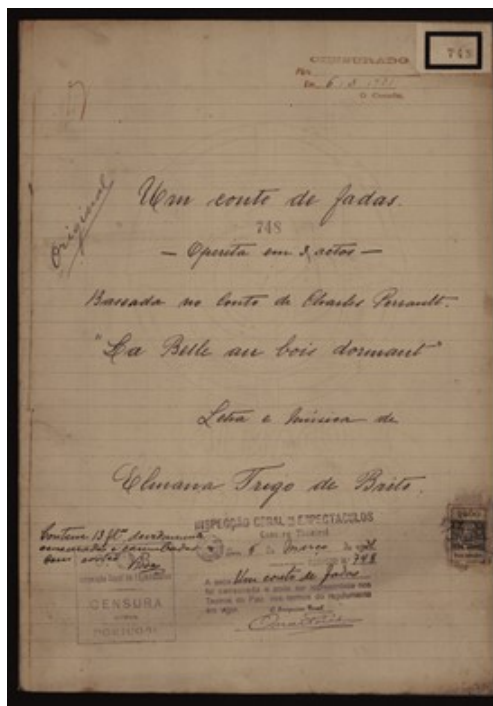 748
CENSURADO
Em 6-3-1931
O Censor,
Original
Um conto de fadas.
748
— Opereta em 3 actos —
Bassada no Conto de Charles Perrault.
"La Belle au bois dormant"
Letra e Música de
Elmana Trigo de Brito.
Contem 13 fl.as devidamente
censuradas e carimbadas
INSPECÇÃO GERAL DOS ESPECTACULOS
6 de Março de 1931
748
A peça Um conto de fadas
foi censurada e pode ser representada nos
Teatros do País, nos termos do regulamento
em vigor.
O Inspector Geral
Inspecção Geral dos Espectaculos
CENSURA
PORTUGAL